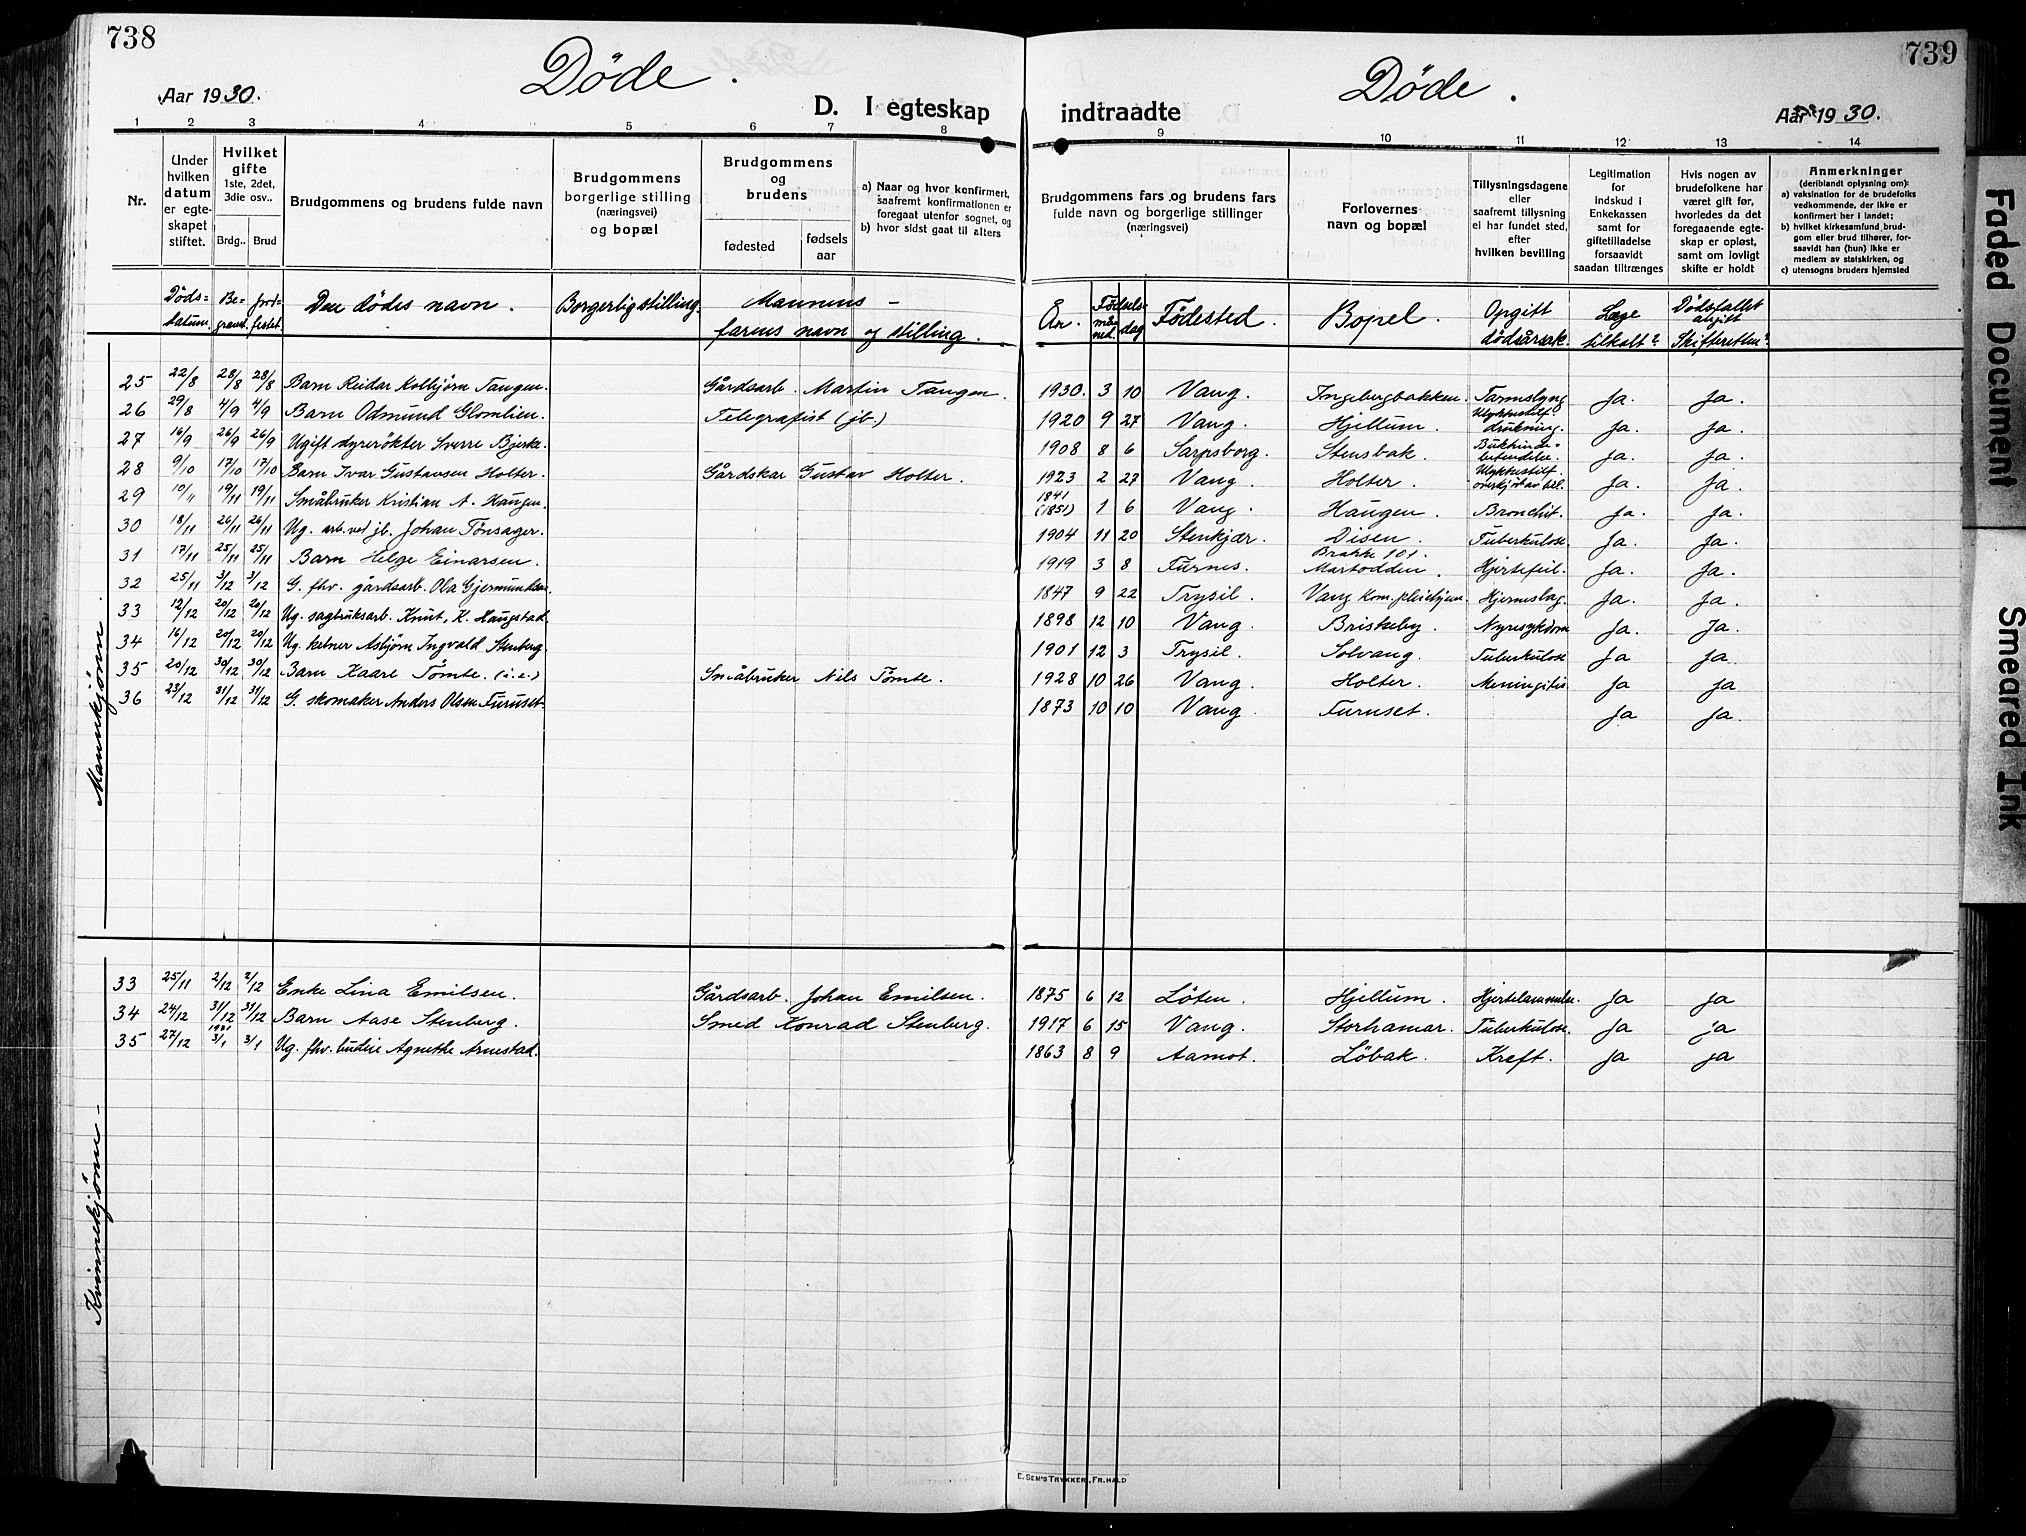 738
Døde.
Aar 1930.
D. I egteskap
1 2 3 4 5 6 7 8
Nr.
Under hvilken datum er egteskapet stiftet.
Hvilket gifte 1ste, 2det, 3die osv..
Brdg.. Brud
Brudgommens og brudens fulde navn
Brudgommens borgerlige stilling (næringsvei) og bopæl
Brudgommens og brudens
fødested
fødsels aar
a) Naar og hvor konfirmert, saafremt konfirmationen er foregaat utenfor sognet, og
b) hvor sidst gaat til alters
Døds-datum Be-gravet Jord-festet Den dødes navn. Borgerlig stilling. Mannens – farens navn og stilling.
Mannkjønn
25 22/8 28/8 28/8 Barn Reidar Kolbjørn Tangen. Gårdsarb. Martin Tangen.
26 29/8 4/9 4/9 Barn Odmund Glomlien. Telegrafist (jb.)
27 16/9 26/9 26/9 Ugift dyrerøkter Sverre Bjerke.
28 9/10 17/10 17/10 Barn Ivar Gustavsen Holter. Gårdskar Gustav Holter.
29 10/11 19/11 19/11 Småbruker Kristian A. Haugen.
30 18/11 26/11 26/11 Ug. arb. ved jb. Johan Tønsager.
31 17/11 25/11 25/11 Barn Helge Einarsen.
32 25/11 3/12 3/12 G. fhv. gårdsarb. Ola Gjermundsen.
33 12/12 20/12 20/12 Ug. sagbruksarb. Knut K. Haugstad.
34 16/12 20/12 20/12 Ug. kelner Asbjørn Ingvald Stenberg.
35 20/12 30/12 30/12 Barn Kaare Tømte. (i.e.) Småbruker Nils Tømte.
36 23/12 31/12 31/12 G. skomaker Anders Olsen Furuset.
Kvinnekjønn –
33 25/11 2/12 2/12 Enke Lina Emilsen. Gårdsarb. Johan Emilsen.
34 24/12 31/12 31/12 Barn Aase Stenberg. Smed Konrad Stenberg.
35 27/12 1931 3/1 3/1 Ug. fhv. budeie Agnethe Arnestad.
739
Døde.
indtraadte
Aar 1930.
9 10 11 12 13 14
Brudgommens fars og brudens fars fulde navn og borgerlige stillinger (næringsvei)
Forlovernes navn og bopæl
Tillysningsdagene eller saafremt tillysning ei har fundet sted, efter hvilken bevilling
Legitimation for indskud i Enkekassen samt for giftetilladelse forsaavidt saadan tiltrænges
Hvis nogen av brudefolkene har været gift før, hvorledes da det foregaaende egteskap er opløst, samt om lovligt skifte er holdt
Anmerkninger (deriblandt oplysning om):
a) vaksination for de brudefolks vedkommende, der ikke er konfirmert her i landet;
b) hvilket kirkesamfund brudgom eller brud tilhører, forsaavidt han (hun) ikke er medlem av statskirken, og
c) utensogns bruders hjemsted
År. Fødsels-måned. dag Fødested. Bopel. Opgitt dødsårsak. Læge tilkalt? Dødsfallet angitt Skifteretten?
1930. 3 10 Vang. Ingebergbakken. Tarmslyng Ja. Ja.
1920 9 27 Vang. Hjellum. Ulykkestilf. drukning. Ja. Ja.
1908 8 6 Sarpsborg. Stensbak. Bukhinde-betendelse. Ja. Ja.
1923 2 27 Vang. Holter. Ulykkestilf. overkjørt av bil. Ja. Ja.
1841 (1851) 1 6 Vang. Haugen. Bronchit. Ja. Ja.
1904 11 20 Stenkjær. Disen. Tuberkulose. Ja. Ja.
1919 3 8 Furnes. Brakke 101. Martodden. Hjertefeil. Ja. Ja.
1847 9 22 Trysil. Vang kom. pleiehjem. Hjerneslag. Ja. Ja.
1898 12 10 Vang. Briskeby. Nyresykdom Ja. Ja.
1901 12 3 Trysil. Solvang. Tuberkulose Ja Ja.
1928 10 26 Vang. Holter. Meningitis Ja Ja
1873 10 10 Vang. Furuset. Ja Ja.
1875 6 12 Löten. Hjellum. Hjertelammelse. Ja Ja
1917 6 15 Vang. Storhamar. Tuberkulose. Ja ja
1863 8 9 Aamot. Löbak. Kreft. Ja Ja
E. SEM'S TRYKKER. FR.HALD
Faded Document
Smeared Ink